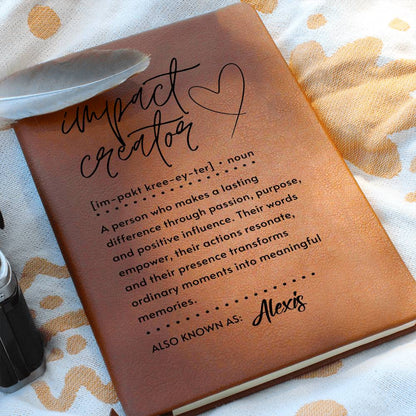 impact
creator
[im-pakt kree-ey-ter] • noun
A person who makes a lasting
difference through passion, purpose,
and positive influence. Their words
empower, their actions resonate,
and their presence transforms
ordinary moments into meaningful
memories.
ALSO KNOWN AS: Alexis